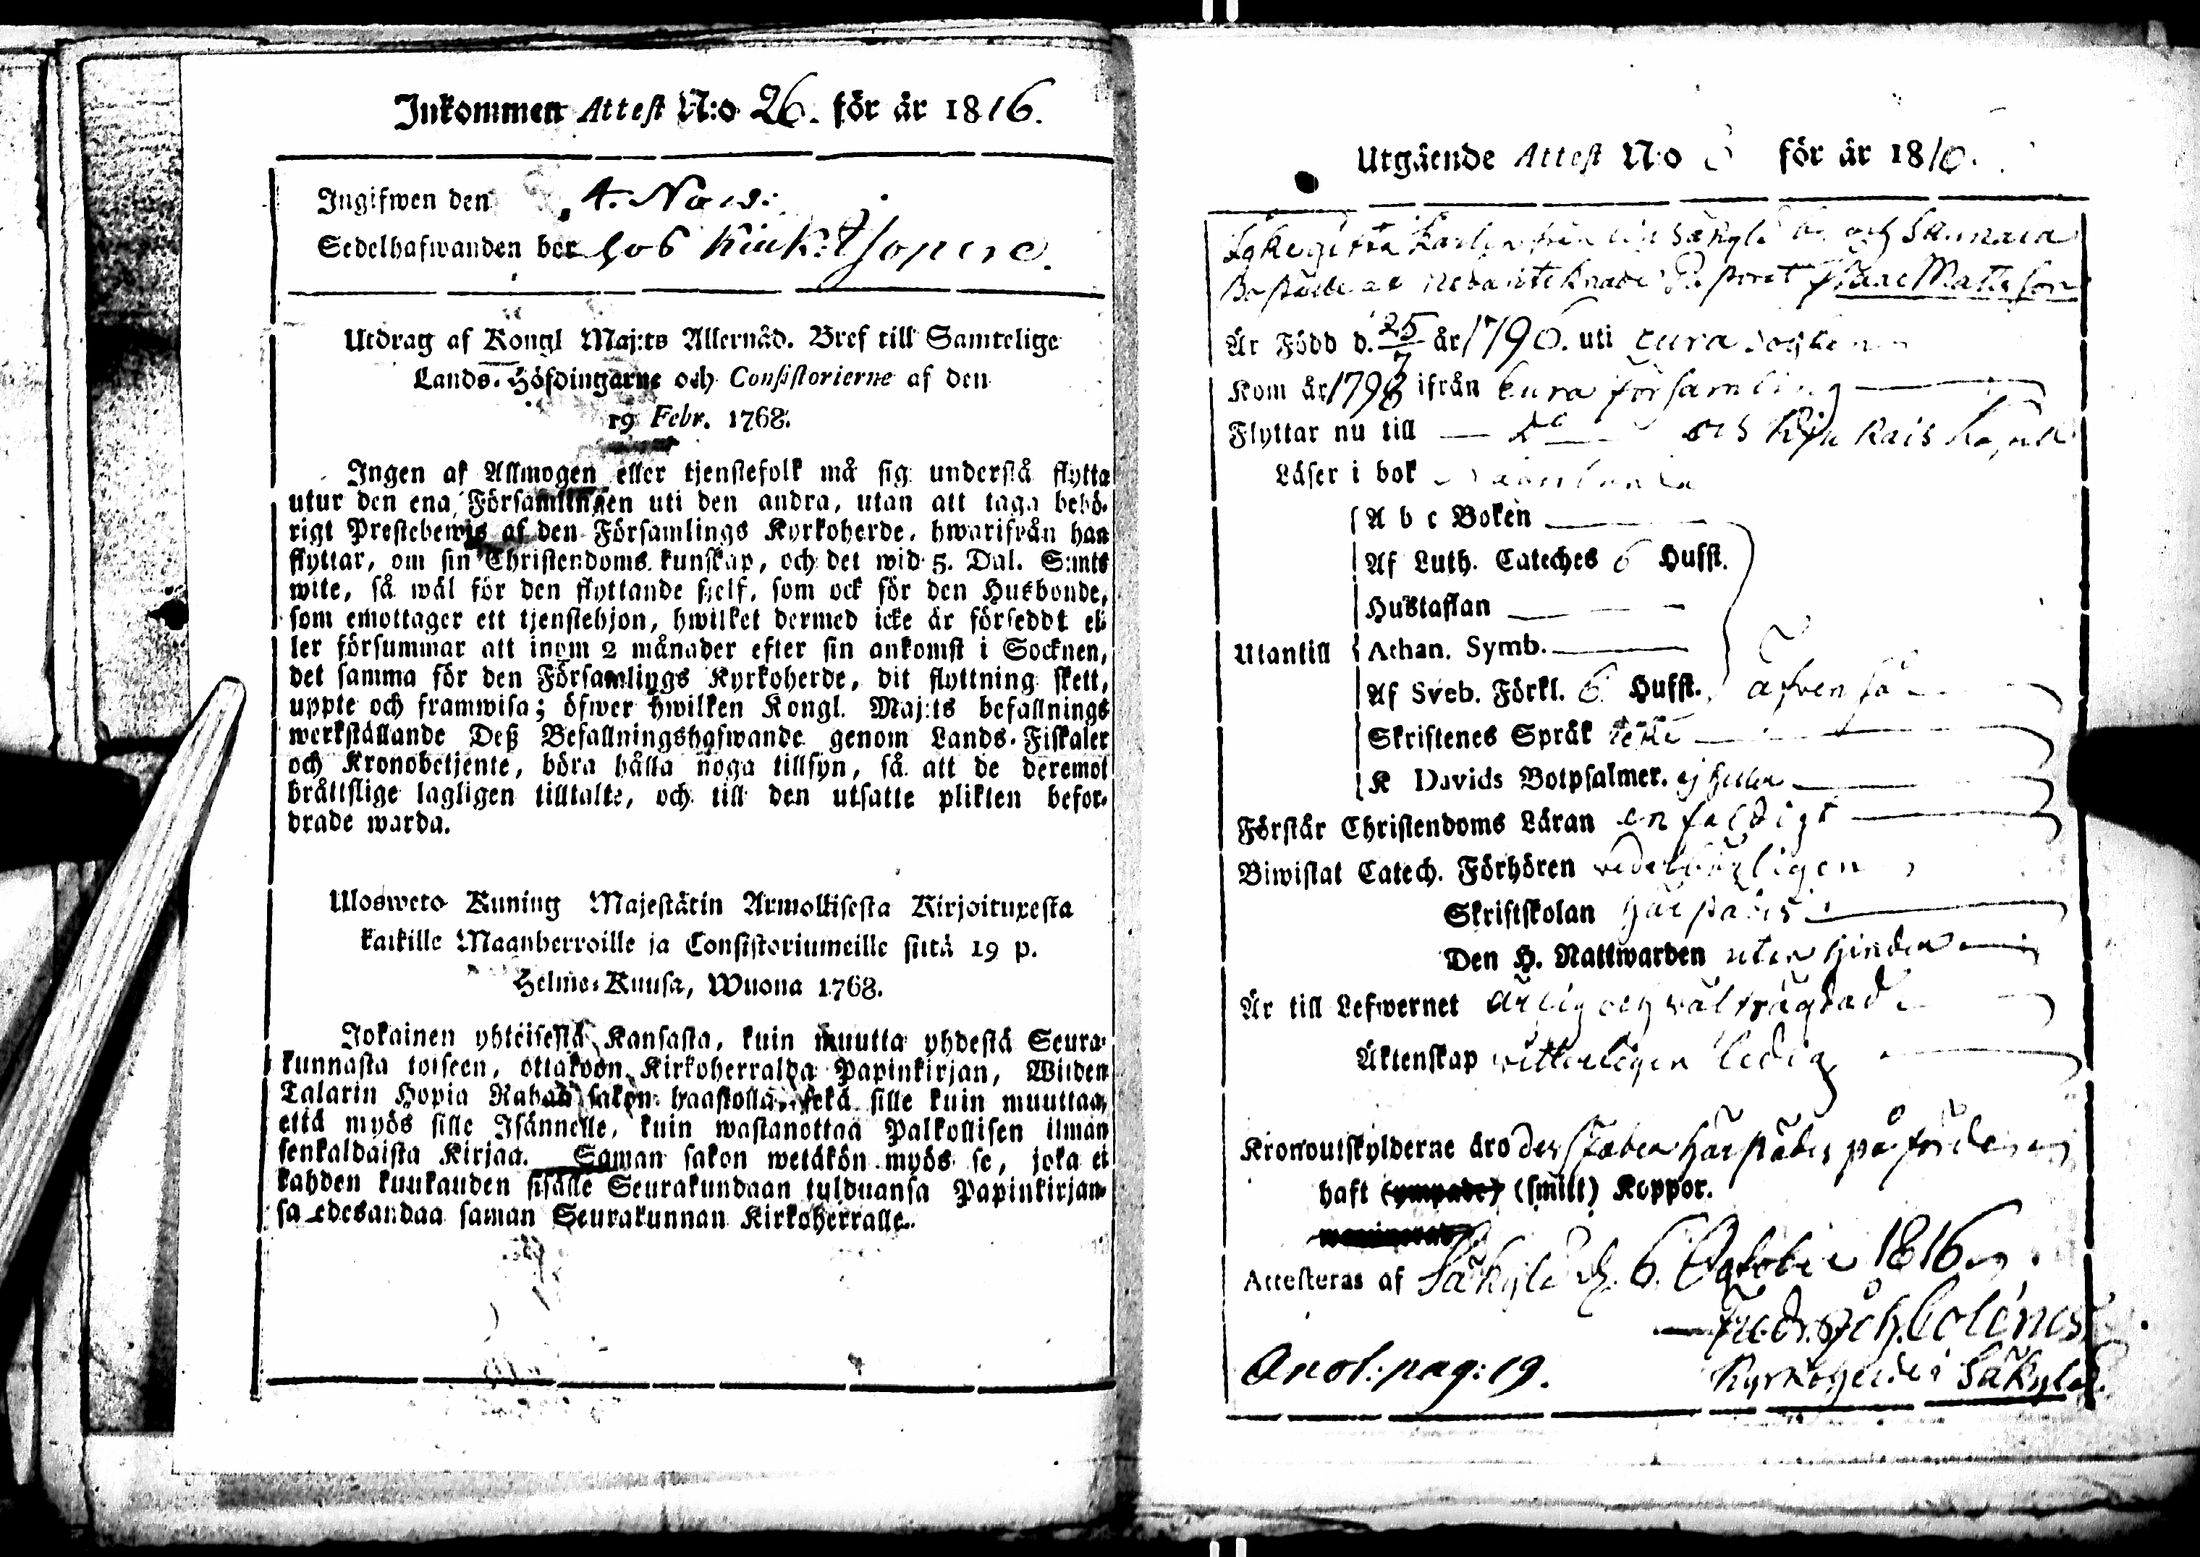 Inkommen Attest N:o 26. för år 1816.
Ingifwen den 4. Nov:
Sedelhafwanden bor hos
Utdrag af Kongl Maj:ts Allernåd. Bref till Samtelige
Lands-Höfdingarne och Consistorierne af den
19 Febr. 1768.
Ingen af Allmogen eller tjenstefolk må sig understå flytta
utur den ena Församlingen uti den andra, utan att taga behö-
rigt Prestebewis af den Församlings Kyrkoherde, hwarifrån han
flyttar, om sin Christendoms kunskap, och det wid 5. Dal. S:mts
wite, så wäl för den flyttande sjelf, som ock för den Husbonde,
som emottager ett tjenstehjon, hwilket dermed icke är förseddt el-
ler försummar att inom 2 månader efter sin ankomst i Socknen,
det samma för den Församlings Kyrkoherde, dit flyttning skett,
uppte och framwisa; öfwer hwilken Kongl. Maj:ts befallnings
werkställande Deß Befallningshafwande genom Lands-Fiskaler
och Kronobetjente, böra hålla noga tillsyn, så att de deremot
bråttslige lagligen tilltalte, och till den utsatte plikten befor-
drade warda.
Ulosweto Kuning Majestätin Armollisesta Kirjoituxesta
kaikille Maanherroille ja Consistoriumeille siitä 19 p.
Helme-Kuusa, Wuona 1768.
Jokainen yhteisestä Kansasta, kuin muutta yhdestä Seura-
kunnasta toiseen, ottakoon Kirkoherralda Papinkirjan, Wiiden
Talarin Hopia Rahan sakon haastolla, sekä sille kuin muuttaa,
että myös sille Isännelle, kuin wastanottaa Palkollisen ilman
senkaldaista Kirjaa. Saman sakon wetäkön myös se, joka ei
kahden kuukauden sisälle Seurakundaan tulduansa Papinkirjan-
sa edesandaa saman Seurakunnan Kirkoherralle.
Utgående Attest N:o för år 1816.
Isaac Mattsson
Är Född d. 25/7 år 1796. uti Eura Socken
Kom år 1798 ifrån Eura församling
Flyttar nu till
Läser i bok
A b c Boken
Af Luth. Cateches 6 Hufst.
Hustaflan
Utantill Athan. Symb.
Af Sveb. Förkl. 6. Hufst. äfven så
Skriftenes Språk icke
K Davids Botpsalmer. ej heller
Förstår Christendoms Läran enfaldigt
Biwistat Catech. Förhören wederbörligen
Skriftskolan härstädes
Den H. Nattwarden utan hinder
Är till Lefwernet ärlig och välfrägdad
Äktenskap vitterligen ledig
Kronoutskylderne äro härstädes på förd
haft (ympade) (smitt) Koppor.
Attesteras af Säkylä d. 6. October 1816
Kyrkoherde i Säkylä
Anot: pag: 19.